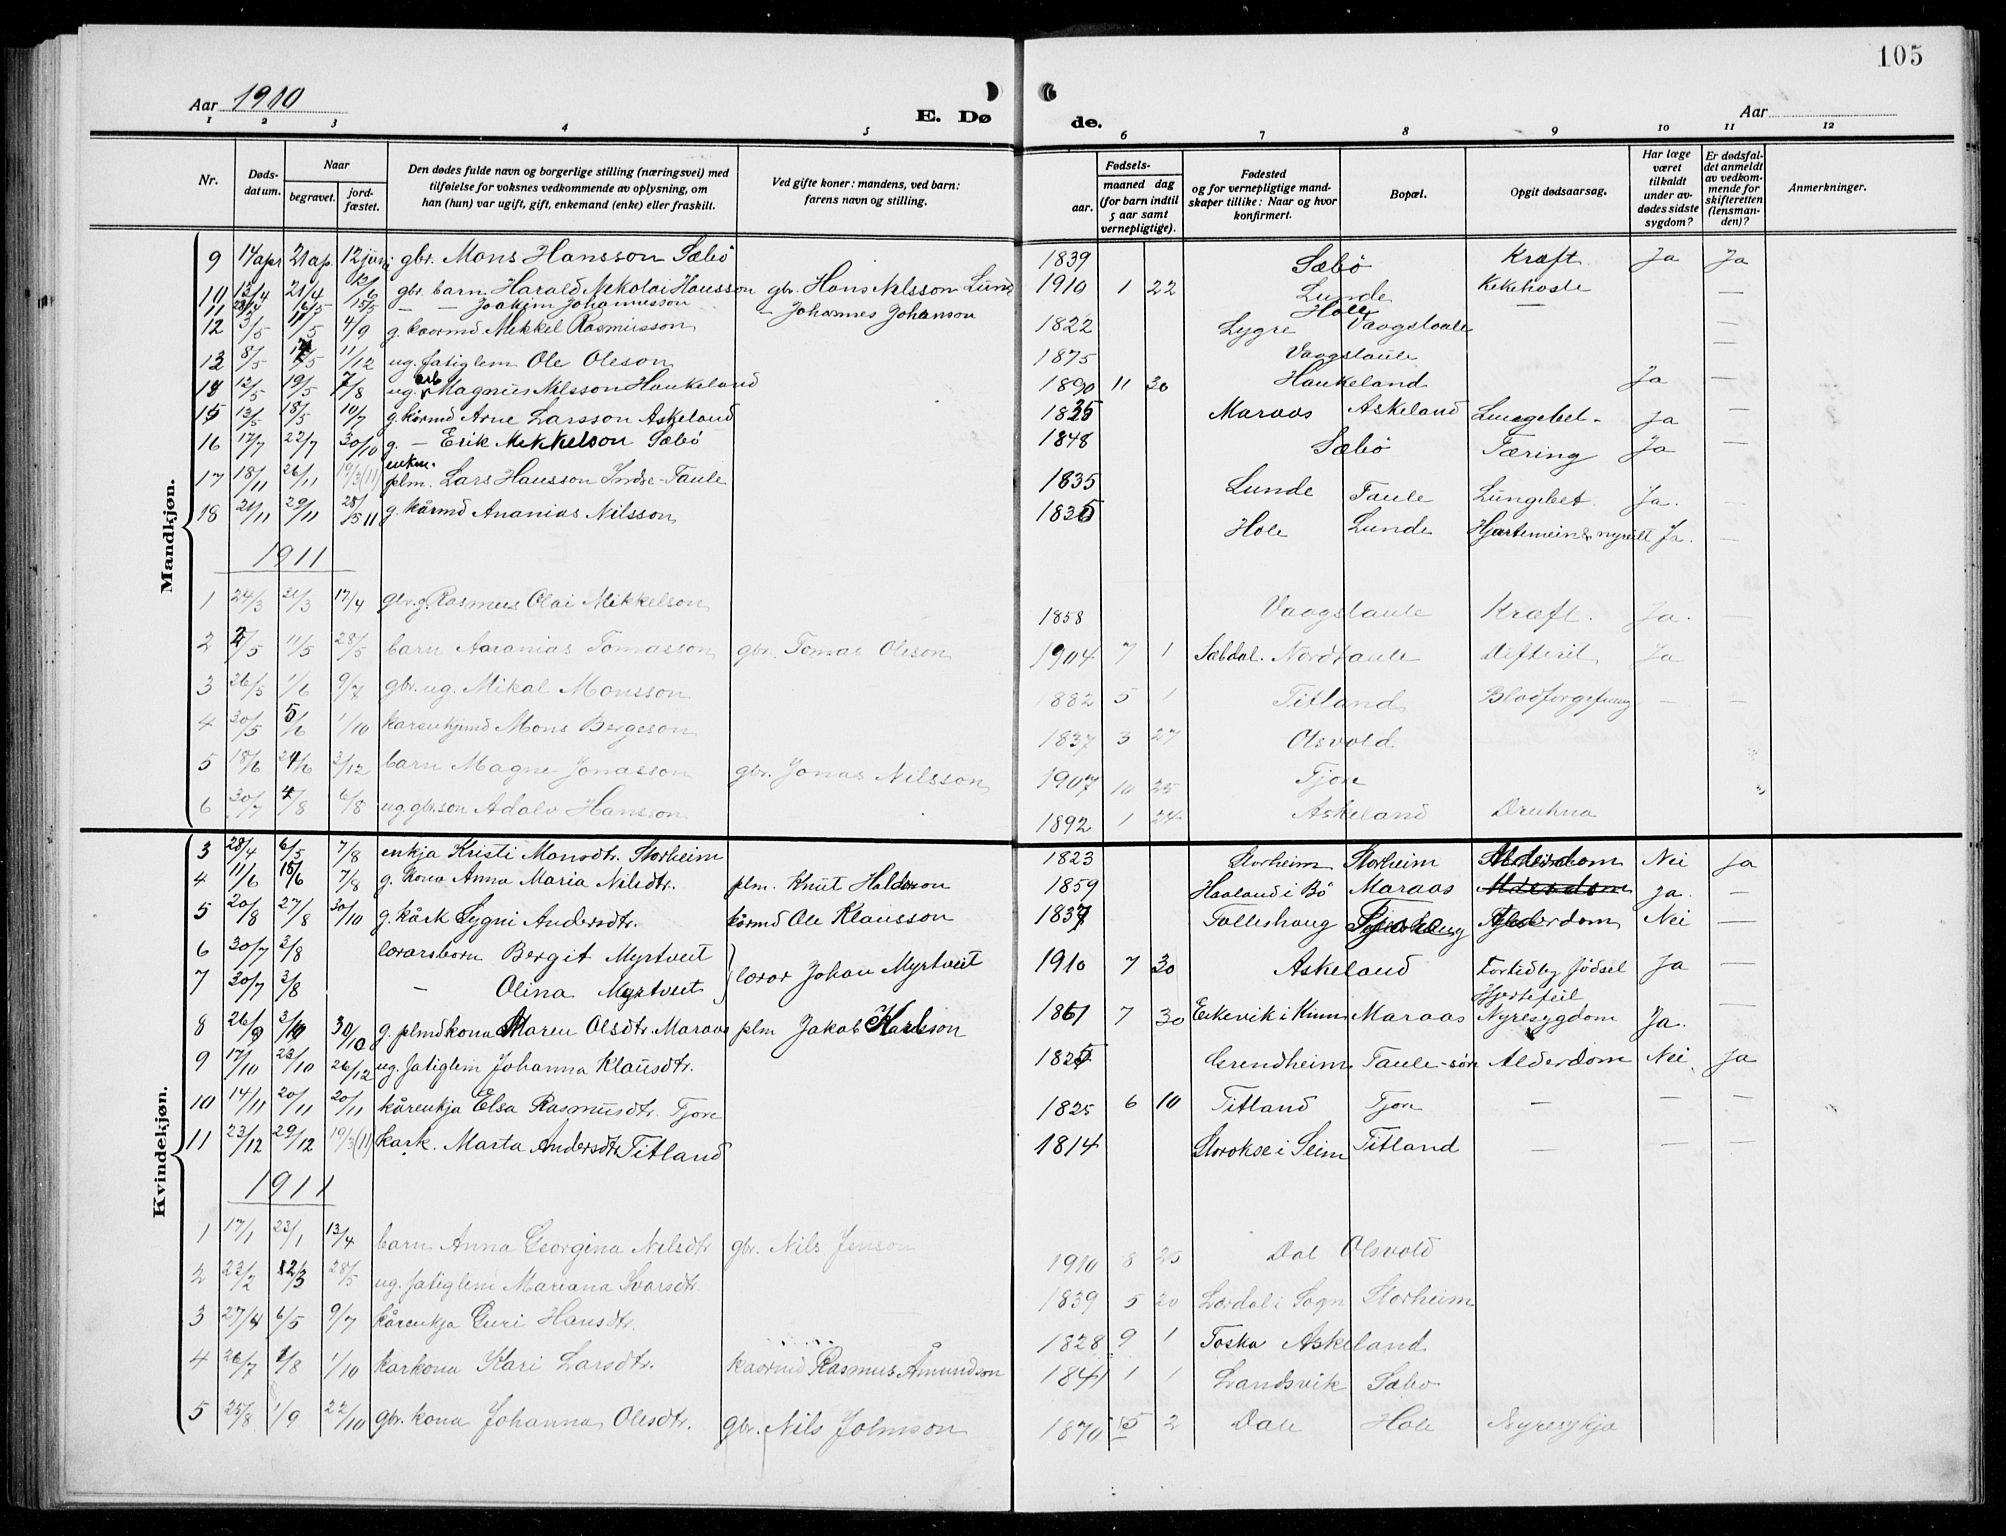 105
Aar 1910
E. Dø
de.
Aar
1 2 3 4 5 6 7 8 9 10 11 12
Nr.
Døds-datum.
Naar
begravet.
jord-fæstet.
Den dødes fulde navn og borgerlige stilling (næringsvei) med tilføielse for voksnes vedkommende av oplysning, om han (hun) var ugift, gift, enkemand (enke) eller fraskilt.
Ved gifte koner: mandens, ved barn: farens navn og stilling.
Fødsels-
aar.
maaned dag
(for barn indtil 5 aar samt vernepligtige).
Fødested og for vernepligtige mand-skaper tillike: Naar og hvor konfirmert.
Bopæl.
Opgit dødsaarsag.
Har læge været tilkaldt under av-dødes sidste sygdom?
Er dødsfal-det anmeldt av vedkom-mende for skifteretten (lensman-den)?
Anmerkninger.
Mandkjøn.
9 14 apr 21 ap. 12 juni gbr. Mons Hansson Sæbö 1839 Sæbö Kræft Ja Ja
10 13/4 21/4 12/6 gbr. barn Harald Nikolai Hansson gbr. Hans Nilsson Lund 1910 1 22 Lunde Kikehoste —
11 — — Joakim Johannesson — Johannes Johanson Hole —
12 3/5 11/5 4/9 g. kaarmd Mikkel Rasmusson 1822 Lygre Vaagstaule —
13 8/5 11/12 ug. fatiglem Ole Oleson 1875 Vaagstaule —
14 12/5 19/5 7/8 ug. arb Magnus Nilsson Haukeland 1890 11 30 Haukeland Ja —
15 13/5 18/5 10/7 g. kårmd Arne Larsson Askeland 1835 Maraas Askeland Lungebet. Ja —
16 17/7 22/7 30/10 g. — Erik Mikkelson Sæbö 1848 Sæbö Tæring Ja —
17 18/11 26/11 19/3(11) enkm. plm. Lars Hansson Indre-Taule 1835 Lunde Taule Lungebet. Ja. —
18 21/11 29/11 28/5 11 g. kårmd Ananias Nilsson 1836 Hole Lunde Hjartemein & nyreill Ja. —
1911
1 24/3 31/3 17/4 gbr. g. Rasmus Olai Mikkelson 1858 Vaagstaule Kræft. Ja. —
2 2/5 11/5 28/5 barn Aaranias Tomasson gbr. Tomas Oleson 1904 7 1 Sæbdal. Nordtaule Difterit Ja —
3 26/5 1/6 9/7 gbr. ug. Mikal Monsson 1882 5 1 Titland Blodforgiftning — —
4 30/5 5/6 1/10 Mons Bergeson 1837 3 27 Olsvold
5 18/6 24/6 3/12 barn Magne Jonasson gbr. Jonas Nilsson 1907 10 25 Tjore
6 30/7 4/8 6/8 ug. gbr.son Adalv Hansson 1892 1 24 Askeland Drukna
Kvindekjøn.
3 28/4 6/5 7/8 enkja Kristi Monsdtr. Storheim 1823 Storheim Storheim Alderdom Nei Ja
4 11/6 15/6 7/8 g. kona Anna Maria Nilsdtr. plm. Knut Haldorson 1859 Haaland i Bö Maraas Alderdom Ja. —
5 20/8 27/8 30/10 g. kårk Sygni Andersdtr. kårmd Ole Klausson 1837 Tolleshaug Alderdom Nei —
6 30/7 2/8 lærarsborn Bergit Myrtveit lærar Johan Myrtveit 1910 7 30 Askeland Fortidleg födsel Ja —
7 30/7 2/8 — Olina Myrtveit
8 26/9 2/10 30/10 g. plmdkona Maren Olsdtr. Maraas plm Jakob Karlson 1861 7 30 Eikevik i Kinn Maraas Hjertefeil Nyresygdom Ja. —
9 17/10 23/10 26/12 ug. fatiglem Johanna Klausdtr. 1825 Grendheim Taule-sör Alderdom Nei. Ja
10 14/11 20/11 20/11 kårenkja Elsa Rasmusdtr. Tjore 1825 6 10 Titland Tjore — — —
11 23/12 29/12 19/3(11) kark. Marta Andersdtr Titland 1814 Storokse i Seim Titland — — —
1911
1 17/1 23/1 13/4 barn Anna Georgina Nilsdtr gbr. Nils Jenson 1910 8 25 Dal Olsvold
2 23/2 12/3 28/5 ug. fatiglem Mariana Ivarsdtr. 1839 5 20 Lærdal i Sogn Storheim
3 27/4 6/5 9/7 kårenkja Guri Hansdtr. 1828 9 1 Toska Askeland
4 26/7 1/8 1/10 karkona Kari Larsdtr. kaarmd Rasmus Åmundson 1841 1 1 Landsvik Sæbo
5 25/8 1/9 22/10 gbr. kona Johanna Olesdtr. gbr. Nils Johnson 1870 5 2 Dale Hole Nyresykja